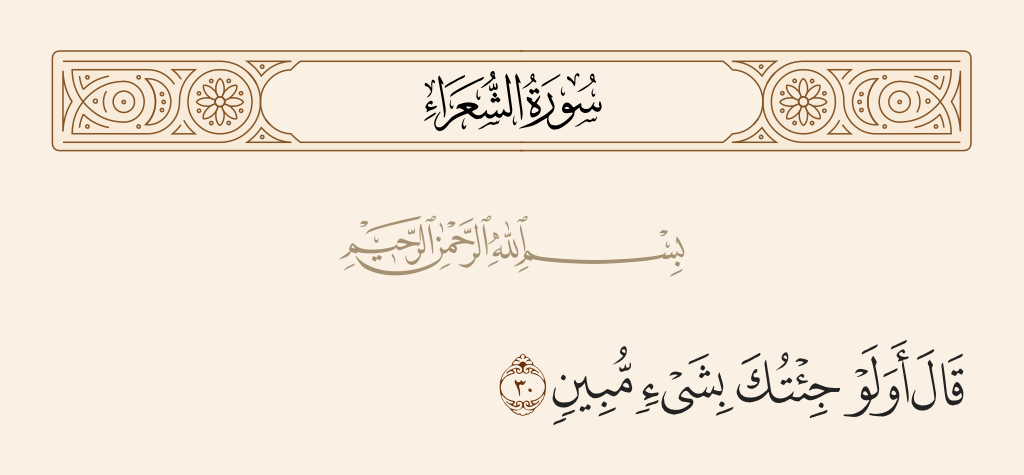 سُورَةُ الشُّعَرَاءِ
بِسْمِ ٱللَّهِ ٱلرَّحْمَٰنِ ٱلرَّحِيمِ
قَالَ أَوَلَوْ جِئْتُكَ بِشَىْءٍ مُّبِينٍ ٣٠